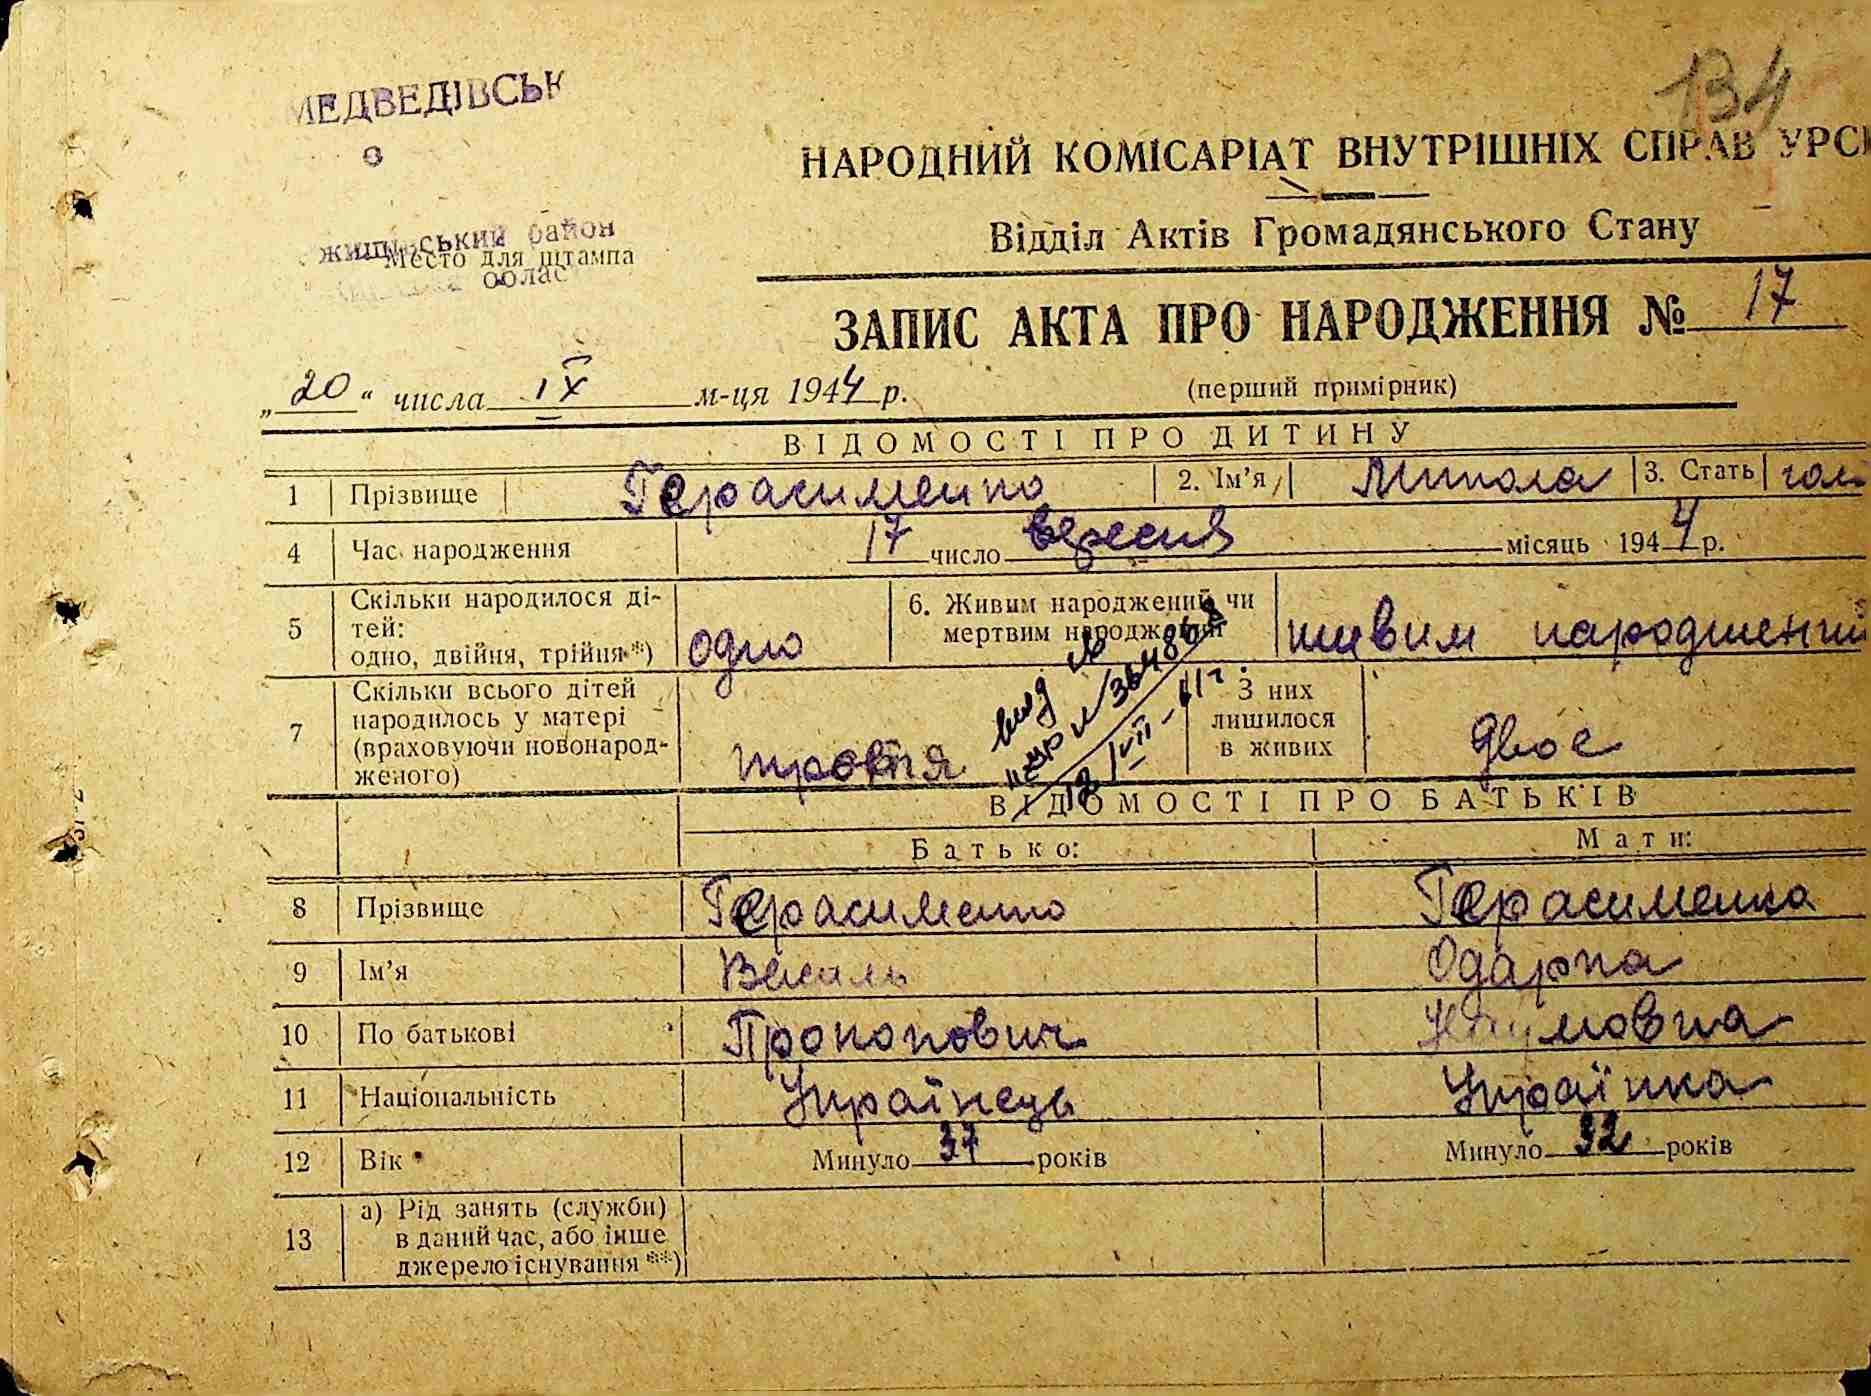 134
МЕДВЕДІВСЬК
НАРОДНИЙ КОМІСАРІАТ ВНУТРІШНІХ СПРАВ УРС
Відділ Актів Громадянського Стану
район
Место для штампа
облас
ЗАПИС АКТА ПРО НАРОДЖЕННЯ № 17
„20“ числа ІХ м-ця 1944 р. (перший примірник)
ВІДОМОСТІ ПРО ДИТИНУ
1 Прізвище Герасименко 2. Ім’я Микола 3. Стать чол
4 Час народження 17 число вересня місяць 1944 р.
5 Скільки народилося ді-
тей:
одно, двійня, трійня *) одно 6. Живим народжений чи
мертвим народжений живим народжений
7 Скільки всього дітей
народилось у матері
(враховуючи новонарод-
женого) З них
лишилося
в живих двоє
ВІДОМОСТІ ПРО БАТЬКІВ
Батько: Мати:
8 Прізвище Герасименко Герасименко
9 Ім’я Василь Одарка
10 По батькові Прокопович Наумовна
11 Національність Українець Українка
12 Вік Минуло 37 років Минуло 32 років
13 а) Рід занять (служби)
в данний час, або інше
джерело існування **)